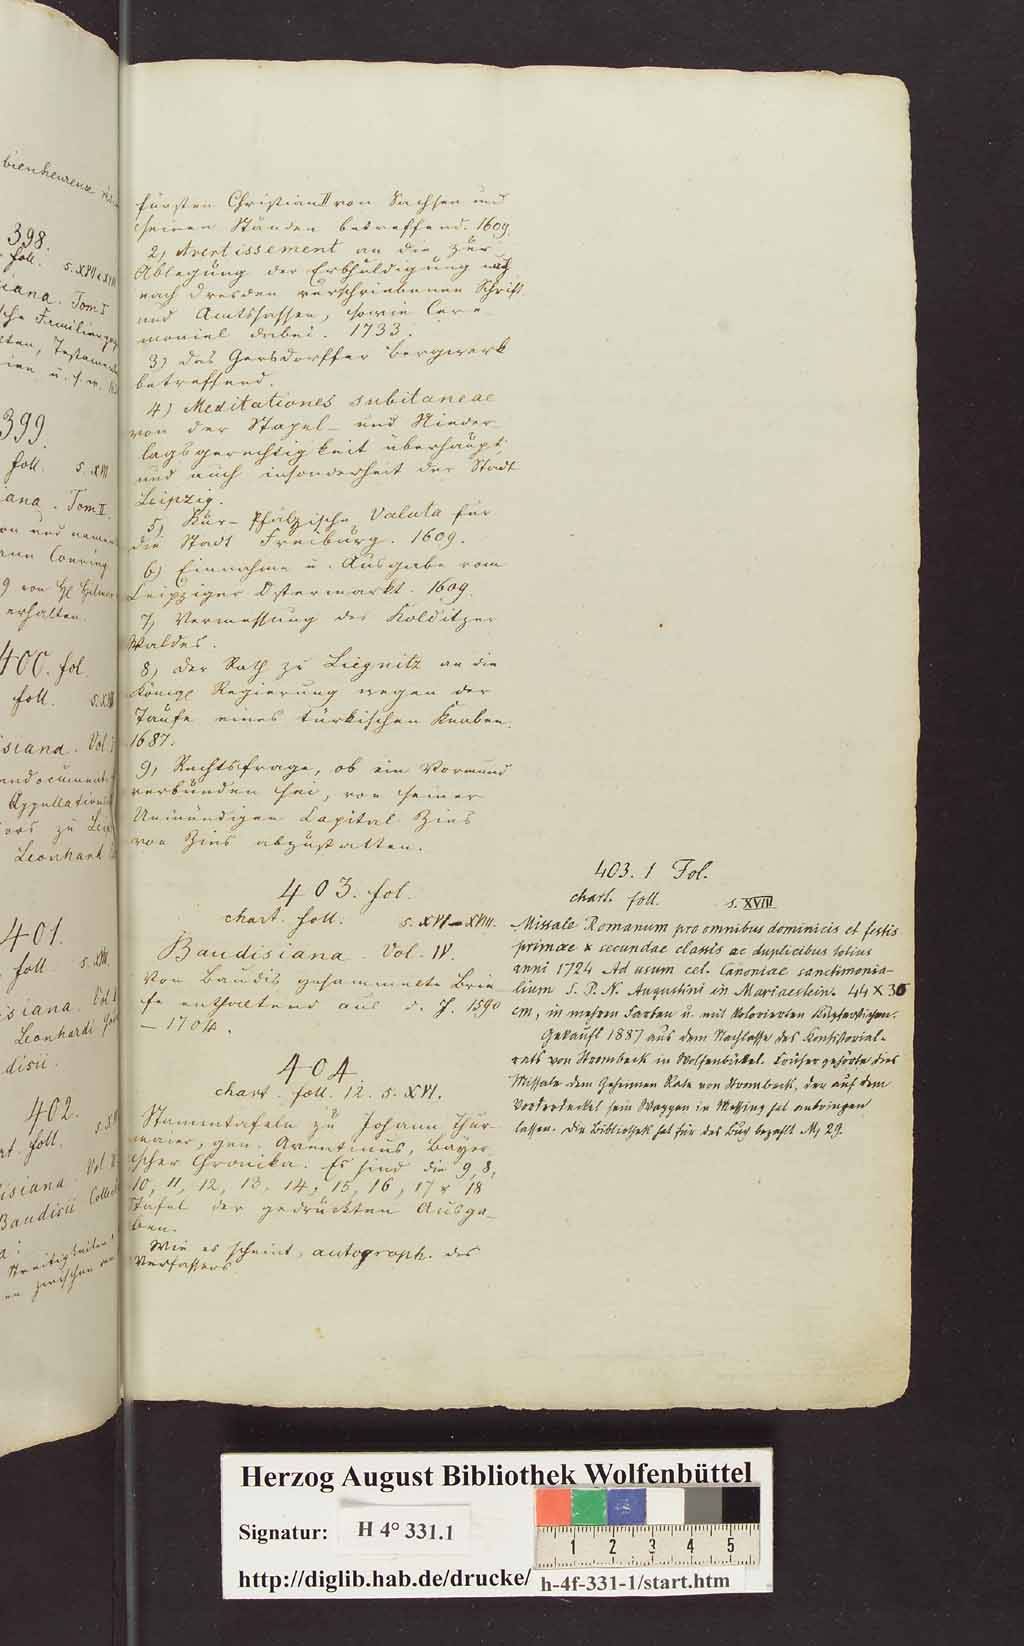 bienheureuse
398.
foll. s. XVI e XVII
iana. Tom I
sche Familien
Testamen
u. s. w.
399.
foll. s. XVI
iana. Tom II.
und namen
ann Conring
erhalten.
400. fol.
foll. s. XVII
isiana. Vol. I
andocumente
Appellation
zu Leip
Leonhart
401.
foll. s. XVII.
isiana. Vol.
Leonhardi
disii.
402.
art. foll.
disiana. Vol.
Baudisii Collec
Streitigkeiten
zwischen
fürsten Christian II von Sachsen und
seinen Ständen betreffend. 1609.
2) Avertissement an die zur
Ablegung der Erbhuldigung
nach Dresden verschriebenen Schrift
und Amtssassen, sowie Cere-
moniel dabei. 1733.
3) Das Gersdorffer Bergwerk
betreffend.
4) Meditationes subitaneae
von der Stapel- und Nieder-
lagsgerechtigkeit überhaupt,
und auch insonderheit der Stadt
Leipzig.
5) Kur-Pfälzische Valuta für
die Stadt Freiburg. 1609.
6) Einnahme u. Ausgabe vom
Leipziger Ostermarkt. 1609.
7) Vermessung des Kolditzer
Waldes.
8) Der Rath zu Liegnitz an die
Königl Regierung wegen der
Taufe eines türkischen Knaben.
1687.
9) Rechtsfrage, ob ein Vormund
verbunden sei, von seiner
Unmündigen Capital Zins
von Zins abzustatten.
403. fol.
chart. foll. s. XVI–XVIII.
Baudisiana. Vol. IV.
Von Baudis gesammelte Brie
fe enthaltend aus d. J. 1590
– 1704.
404
chart. foll. 12. s. XVI.
Stammtafeln zu Johann Thur-
maier, gen. Aventinus, Bayer-
ischer Chronika. Es sind die 9, 8,
10, 11, 12, 13, 14, 15, 16, 17 & 18
Tafel der gedruckten Ausga-
ben.
Wie es scheint, autograph. des
Verfassers.
403. 1 Fol.
chart. foll. s. XVIII
Missale Romanum pro omnibus dominicis et festis
primae & secundae classis ac duplicibus totius
anni 1724 Ad usum cel. Canoniae sanctimonia-
lium S. P. N. Augustini in Mariaestein. 44 x 30
cm, in mehren Farben u. mit kolorierten Kupferstichen.
Gekauft 1887 aus dem Nachlasse des Konsistorial-
rats von Strombeck in Wolfenbüttel. Früher gehörte dies
Missale dem Geheimen Rate von Strombeck, der auf dem
Vorderdeckel sein Wappen in Messing hat anbringen
lassen. Die Bibliothek hat für das Buch bezahlt M. 29.
Herzog August Bibliothek Wolfenbüttel
Signatur: H 4° 331.1
1 2 3 4 5
http://diglib.hab.de/drucke/ h-4f-331-1/start.htm